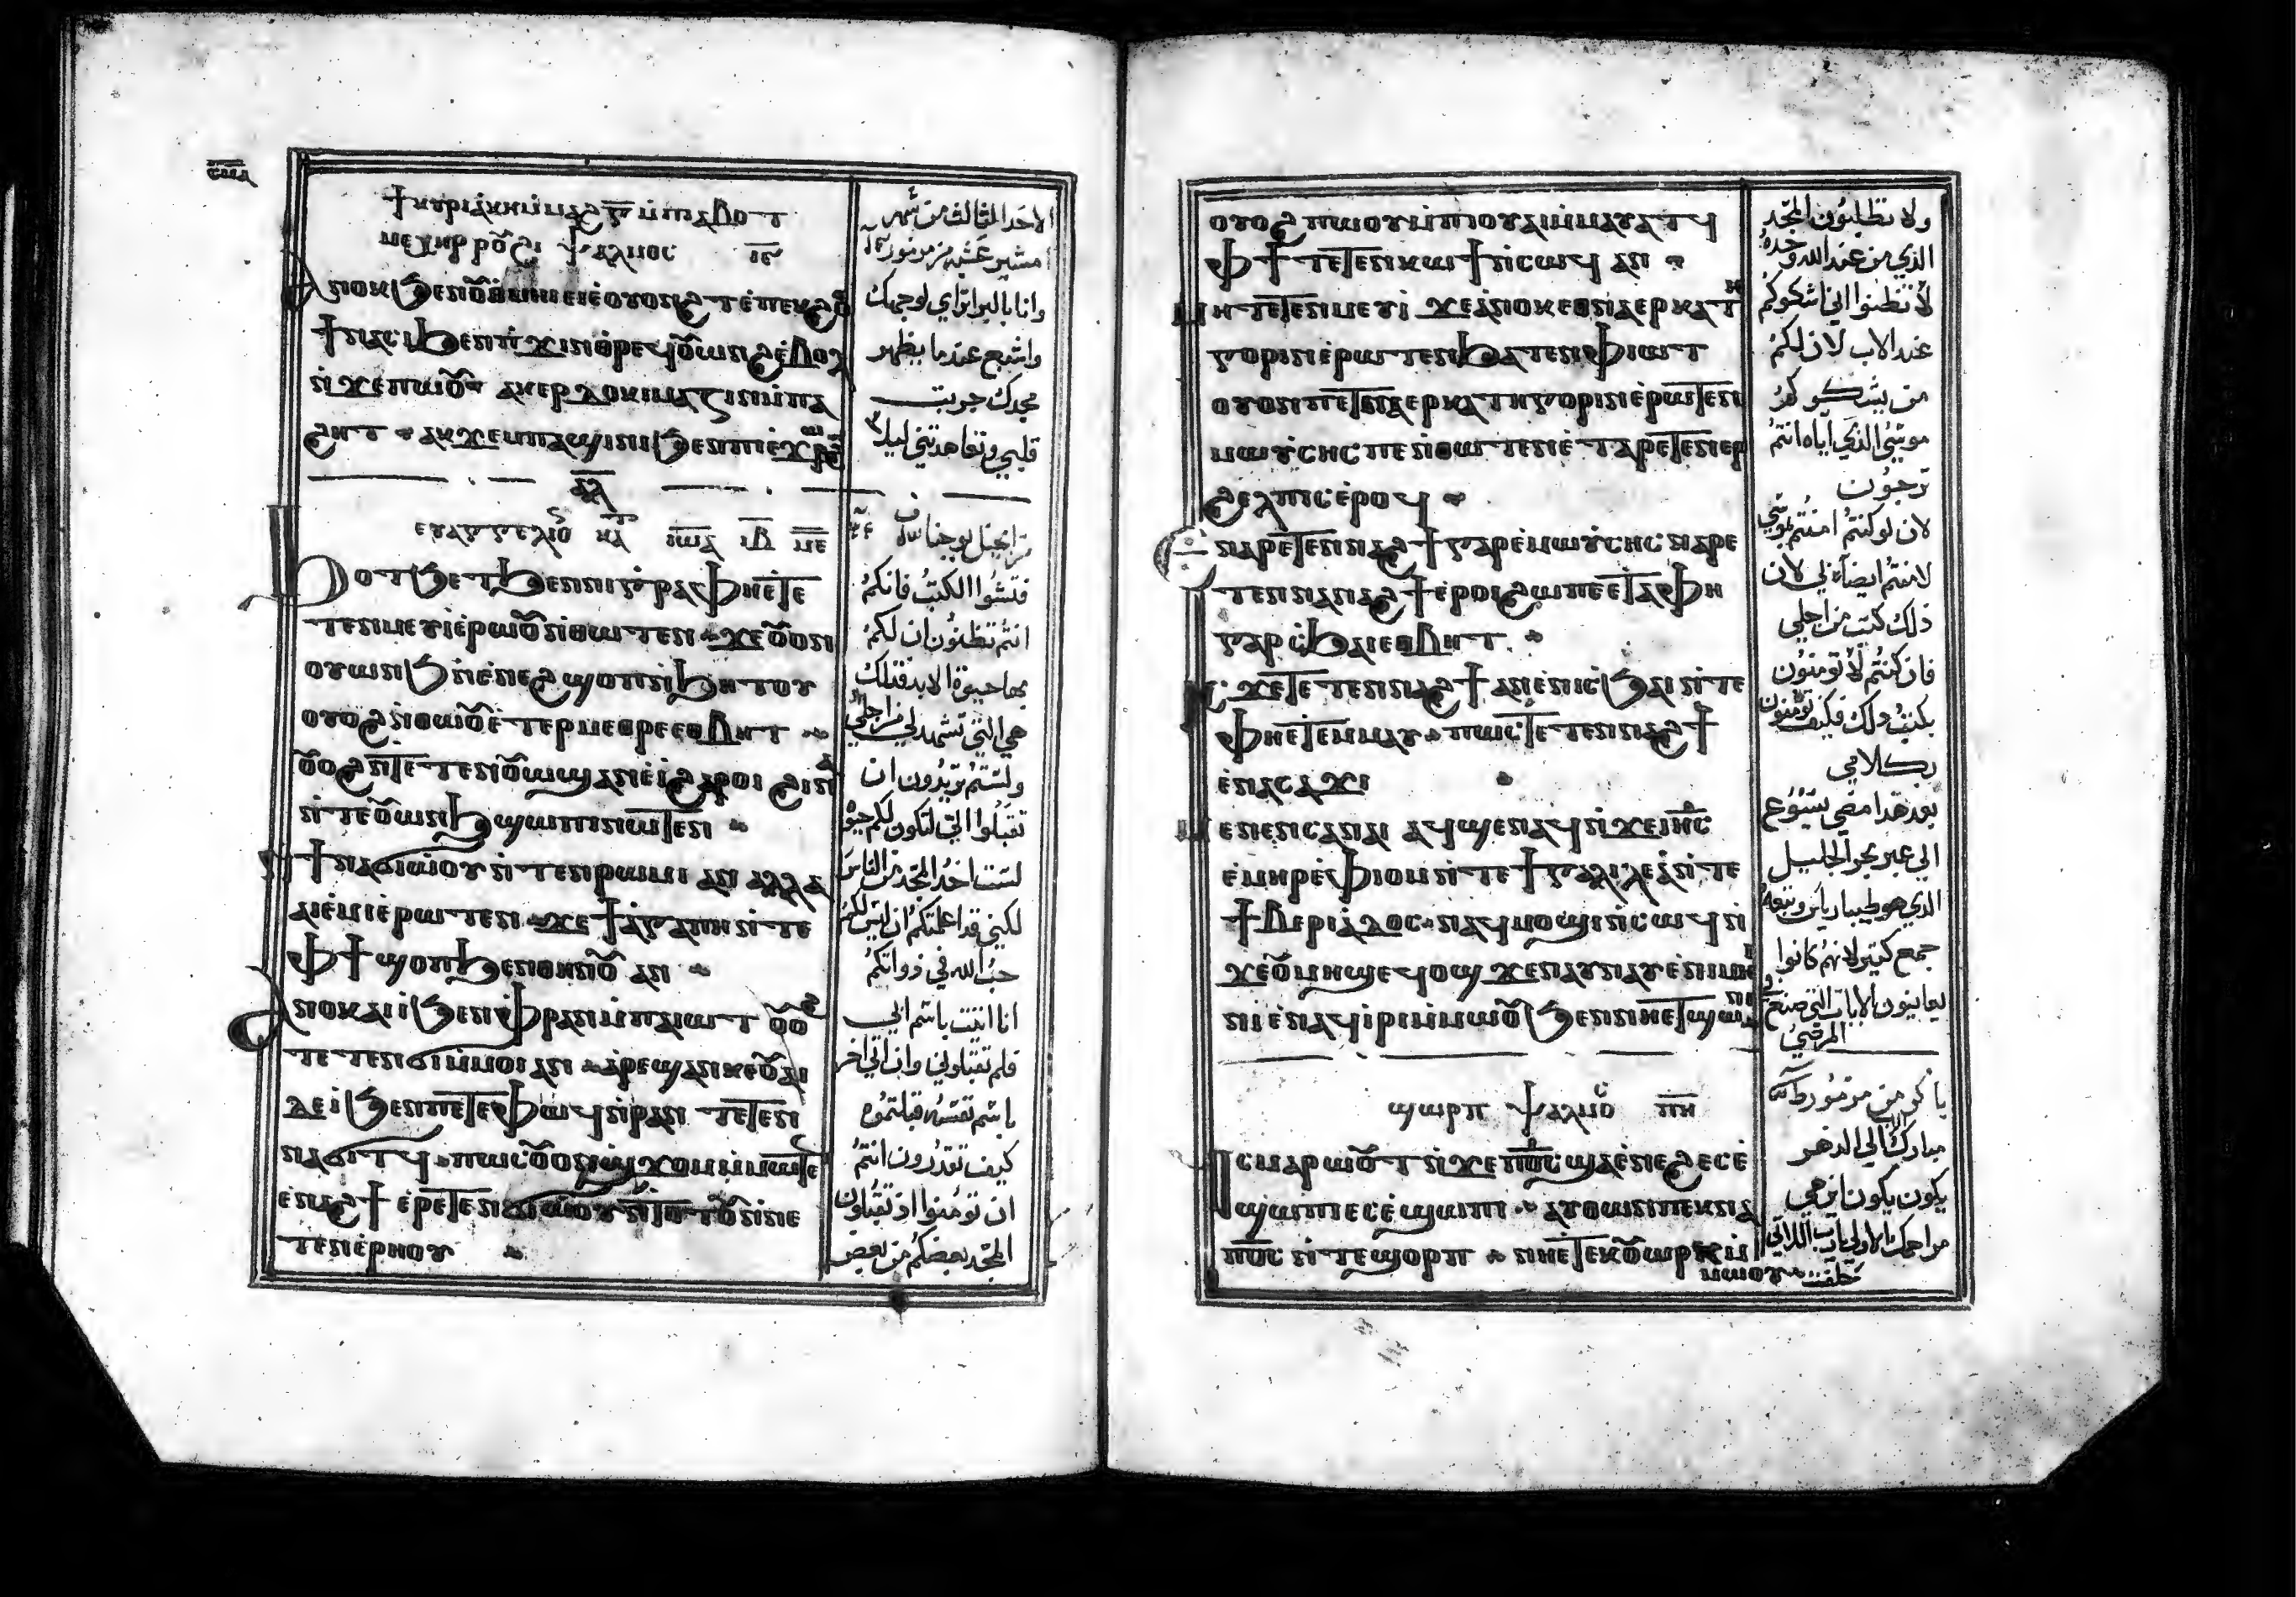 ϯⲕⲩⲣⲓⲁⲕⲏ ⲙ̀ⲙⲁϩ ⲅ̅ ⲙ̀ⲡⲓⲁⲃⲟⲧ
ⲙⲉⲭⲓⲣ ⲣⲟⲩϩⲓ ⲯⲁⲗⲙⲟⲥ ⲓ̅ⲋ̅
ⲁⲛⲟⲕ ϧⲉⲛ
ϯⲛⲁⲥⲓ ϧⲉⲛ ⲡϫⲓⲛⲑⲣⲉϥⲟⲩⲱⲛϩ ⲉ̀ⲃⲟⲗ
ⲛ̀ϫⲉ ⲡⲉⲕⲱⲟⲩ ⲁⲕⲉⲣⲇⲟⲕⲓⲙⲁⲍⲓⲛ ⲙ̀ⲡⲁ
ϩⲏⲧ ⲁⲕϫⲉⲙⲡⲁϣⲓⲛⲓ ϧⲉⲛ ⲡⲓⲉ̀ϫⲱⲣϩ
ⲉⲩⲁⲅⲅⲉⲗⲓⲟ ⲕⲁⲧ ⲓⲱⲁ ⲓ̅ⲃ̅ ⲙ̅ⲉ̅
ϧⲟⲧϧⲉⲧ ϧⲉⲛ ⲛⲓⲅⲣⲁⲫⲏ ⲉ̀ⲧⲉ
ⲧⲉⲛⲙⲉⲩⲓ ⲉ̀ⲣⲱⲟⲩ ⲛ̀ⲑⲱⲧⲉⲛ ϫⲉ ⲟⲩⲟⲛ
ⲟⲩⲱⲛϧ ⲛ̀ⲉ̀ⲛⲉϩ ϣⲟⲡ ⲛ̀ϧⲏⲧⲟⲩ
ⲟⲩⲟϩ ⲛ̀ⲑⲱⲟⲩ ⲉ̀ⲧⲉⲣⲙⲉⲑⲣⲉ ⲉⲑⲃⲏⲧ
ⲟⲩⲟϩ ⲛ̀ⲧⲉⲧⲉⲛⲟⲩⲱϣ ⲁⲛ ⲉ̀ⲓ̀ ϩⲁⲣⲟⲓ ϩⲓⲛⲁ
ⲛ̀ⲧⲉ ⲟⲩⲱⲛϧ ϣⲱⲡⲓ ⲛⲱⲧⲉⲛ
ⲛ̀ϯⲛⲁϭⲓⲱⲟⲩ ⲛ̀ⲧⲉⲛ ⲣⲱⲙⲓ ⲁⲛ ⲁⲗⲗⲁ
ⲁⲓⲉ̀ⲙⲓ ⲉ̀ⲣⲱⲧⲉⲛ ϫⲉ ϯⲁ̀ⲅⲁⲡⲏ ⲛ̀ⲧⲉ
ⲫϯ ϣⲟⲡ ϧⲉⲛ ⲑⲏⲛⲟⲩ ⲁⲛ
ⲁⲛⲟⲕ ⲁⲓⲓ̀ ϧⲉⲛ ⲫⲣⲁⲛ ⲙ̀ⲡⲁⲓⲱⲧ ⲟⲩⲟϩ
ⲧⲉⲧⲉⲛϭⲓ ⲙ̀ⲙⲟⲓ ⲁⲛ ⲁ̀ⲣⲉϣⲁⲛ ⲕⲉⲟⲩⲁⲓ
ⲇⲉ ⲓ̀ ϧⲉⲛ ⲡⲉⲧⲉ ⲫⲱϥ ⲛ̀ⲣⲁⲛ ⲧⲉⲧⲉⲛ
ⲛⲁϭⲓⲧϥ ⲡⲱⲥ ⲟⲩⲟⲛ ϣϫⲟⲙ ⲙ̀ⲙⲱⲧⲉⲛ
ⲉ̀ⲛⲁϩϯ ⲉ̀ⲣⲉⲧⲉⲛϭⲓⲱⲟⲩ ⲛ̀ⲧⲟⲧⲟⲩ ⲛ̀ⲛⲉ
ⲧⲉⲛⲉ̀ⲣⲏⲟⲩ
الاحد الثالث من شهر
امشير عشيه مزمور
وانا بالبر اتراي لوجهك
واشبع عندما يظهر
مجدك جربت
قلبي وتعاهدتني ليلا
من انجيل يوحنا
فتشوا الكتب فانكم
انتم تظنون ان لكم
بها حيوة الابد فتلك
هي التي تشهد لي من اجلي
ولستم تريدون ان
تقبلوا الي لتكون لكم حيوة
لست اخذ المجد من الناس
لكني قد اعلمتكم ان ليس لكم
حب الله في ذواتكم
انا اتيت باسم ابي
فلم تقبلوني وان اتي اخر
باسم نفسه قبلتموه
كيف تقدرون انتم
ان تومنوا اذ تقبلون
المجد بعضكم من بعض
ⲟⲩⲟϩ ⲡⲱⲟⲩ ⲙ̀ⲡⲓⲟⲩⲁⲓ ⲙ̀ⲙⲁⲩⲁⲧϥ
ⲫϯ ⲧⲉⲧⲉⲛⲕⲱϯ ⲛ̀ⲥⲱϥ ⲁⲛ
ⲙⲏ ⲧⲉⲧⲉⲛⲙⲉⲩⲓ ϫⲉ ⲁ̀ⲛⲟⲕ ⲉⲑⲛⲁⲉⲣⲕⲁⲧⲏ
ⲅⲟⲣⲓⲛ ⲉ̀ⲣⲱⲧⲉⲛ ϧⲁⲧⲉⲛ ⲫⲓⲱⲧ
ⲟⲩⲟⲛ ⲡⲉⲧⲛⲁⲉⲣⲕⲁⲧⲏⲅⲟⲣⲓⲛ ⲉ̀ⲣⲱⲧⲉⲛ
ⲙⲱⲩ̀ⲥⲏⲥ ⲡⲉ ⲛ̀ⲑⲱⲧⲉⲛ ⲉ̀ⲧⲁⲣⲉⲧⲉⲛⲉⲣ
ϩⲉⲗⲡⲓⲥ ⲉ̀ⲣⲟϥ
ⲛⲁⲣⲉⲧⲉⲛⲛⲁϩϯ ⲅⲁⲣ ⲉ̀ⲙⲱⲩ̀ⲥⲏⲥ ⲛⲁⲣⲉ
ⲧⲉⲛⲛⲁⲛⲁϩϯ ⲉ̀ⲣⲟⲓ ϩⲱ ⲡⲉ ⲉⲧⲁ ⲫⲏ
ⲅⲁⲣ ⲥ̀ϧⲁⲓ ⲉⲑⲃⲏⲧ
ⲓⲥϫⲉ ⲧⲉⲧⲉⲛⲛⲁϩϯ ⲁⲛ ⲉ̀ⲛⲓⲥϧⲁⲓ ⲛ̀ⲧⲉ
ⲫⲏⲉ̀ⲧⲉⲙⲙⲁⲩ ⲡⲱⲥ ⲧⲉⲧⲉⲛⲛⲁϩϯ
ⲉ̀ⲛⲁⲥⲁϫⲓ
ⲙⲉⲛⲉⲛⲥⲁ ⲛⲁⲓ ⲁϥϣⲉⲛⲁϥ ⲛ̀ϫⲉ ⲓⲏⲥ
ⲉ̀ⲙⲏⲣ ⲉ̀ⲫⲓⲟⲙ ⲛ̀ⲧⲉ ϯⲅⲁⲗⲓⲗⲉⲁ̀ ⲛ̀ⲧⲉ
ϯⲃⲉⲣⲓⲁ̀ⲇⲟⲥ ⲛⲁϥⲙⲟϣⲓ ⲛ̀ⲥⲱϥ ⲛ̀
ϫⲉ ⲟⲩⲙⲏϣ ⲉϥⲟϣ ϫⲉ ⲛⲁⲩⲛⲁⲩ ⲉ̀ⲛⲓⲙⲏⲓ
ⲛⲓ ⲉ̀ⲛⲁϥⲓ̀ⲣⲓ ⲙ̀ⲙⲱⲟⲩ ϧⲉⲛ ⲛⲏⲉⲧϣⲱⲛⲓ
ϣⲱⲣⲡ ⲯⲁⲗⲙⲟ ⲡ̅ⲏ̅
ϥ̀ⲥⲙⲁⲣⲱⲟⲩⲧ ⲛ̀ϫⲉ ⲡⲟ̅ⲥ̅ ϣⲁ ⲉ̀ⲛⲉϩ ⲉⲥⲉ̀
ϣⲱⲡⲓ ⲉⲥⲉ̀ϣⲱⲡⲓ ⲁⲩⲑⲱⲛ ⲛⲉⲕⲛⲁⲓ
ⲡⲟ̅ⲥ̅ ⲛ̀ⲧⲉ ϣⲟⲣⲡ ⲛⲏⲉⲧⲉⲕⲱⲣⲕ ⲙ̀
ⲙⲱⲟⲩ
ولا تطلبون المجد
الذي من عند الله وحده
لا تظنوا اني اشكوكم
عند الاب لان لكم
من يشكوكم
موسي الذي اياه انتم
ترجون
لان لو كنتم امنتم بموسي
لامنتم ايضا بي لان
ذلك كتب من اجلي
فان كنتم لا تومنون
بكتب ذلك فكيف تومنون
بكلامي
بعد هذا مضي يسوع
الي عبر بحر الجليل
الذي هو طيباريا وتبعه
جمع كثير لانهم كانوا
يعاينون الايات التي صنع في
المرضي
باكر من مزمور
مبارك الرب الي الدهر
يكون يكون اين هي
مراحمك الاولي يارب اللاتي
حلفت